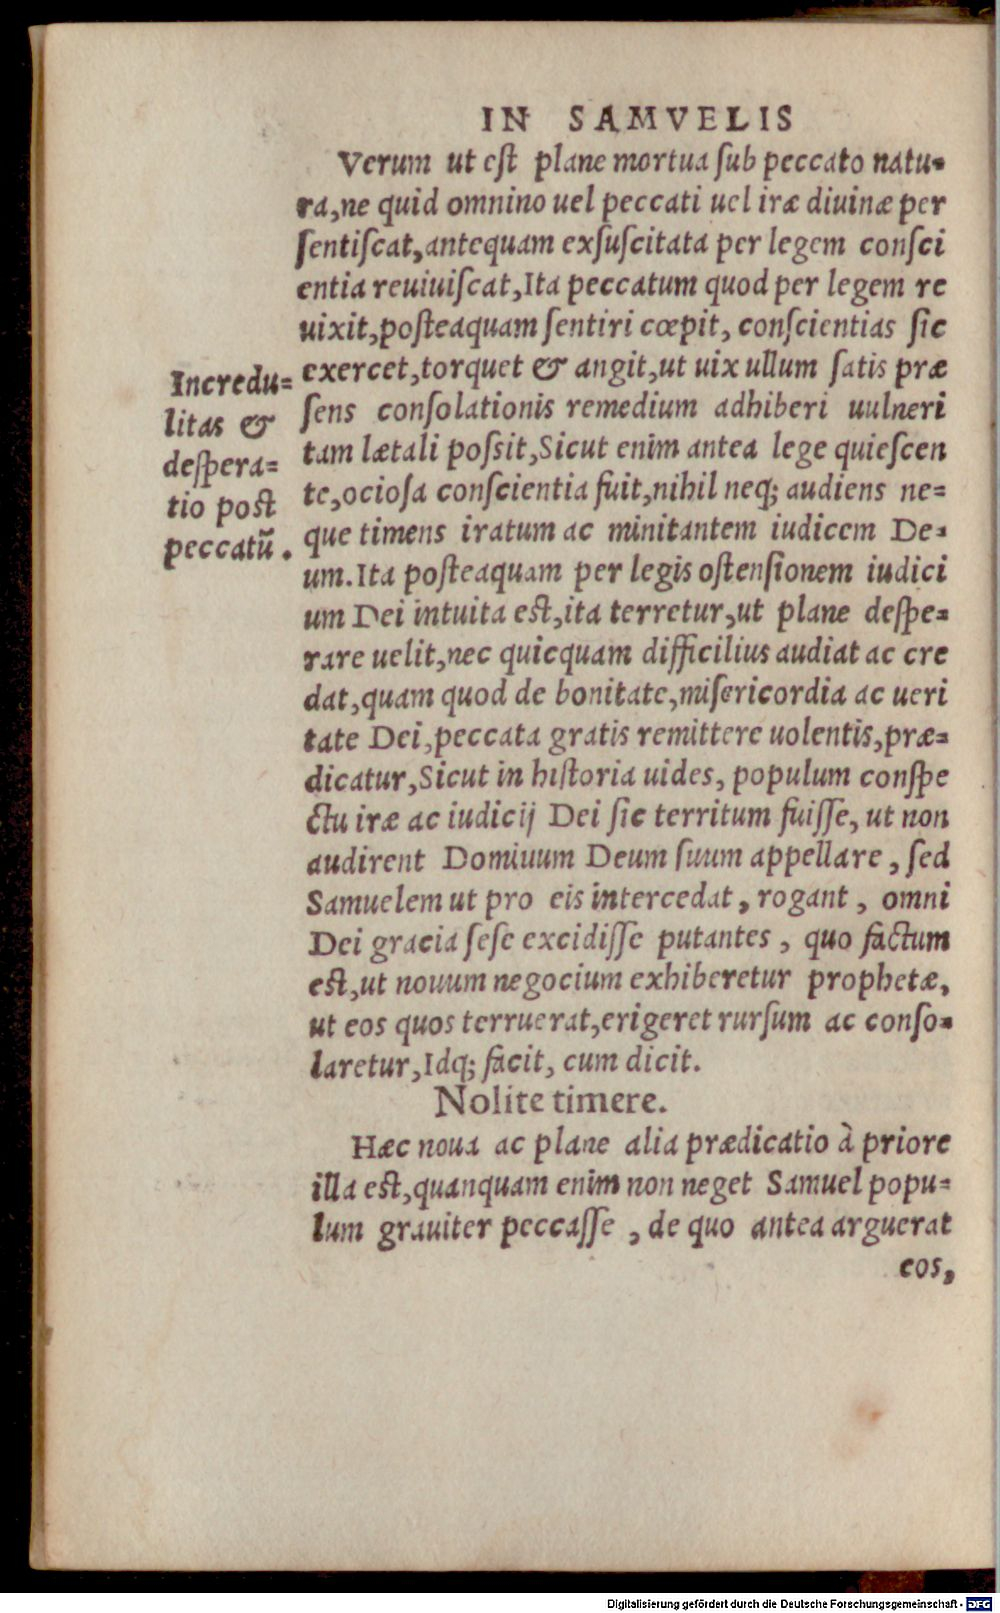 IN SAMVELIS
Verum ut est plane mortua sub peccato natu-
ra, ne quid omnino uel peccati uel iræ diuinæ per
sentiscat, antequam exsuscitata per legem consci
entia reuiuiscat, Ita peccatum quod per legem re
uixit, posteaquam sentiri cœpit, conscientias sic
exercet, torquet & angit, ut uix ullum satis præ
sens consolationis remedium adhiberi uulneri
tam lætali possit, Sicut enim antea lege quiescen
te, ociosa conscientia fuit, nihil neq; audiens ne=
que timens iratum ac minitantem iudicem De-
um. Ita posteaquam per legis ostensionem iudici
um Dei intuita est, ita terretur, ut plane despe-
rare uelit, nec quicquam difficilius audiat ac cre
dat, quam quod de bonitate, misericordia ac ueri
tate Dei, peccata gratis remittere uolentis, præ=
dicatur, Sicut in historia uides, populum conspe
ctu iræ ac iudicij Dei sic territum fuisse, ut non
audirent Domiuum Deum suum appellare, sed
Samuelem ut pro eis intercedat, rogant, omni
Dei gracia sese excidisse putantes, quo factum
est, ut nouum negocium exhiberetur prophetæ,
ut eos quos terruerat, erigeret rursum ac conso-
laretur, Idq; facit, cum dicit.
Nolite timere.
Hæc noua ac plane alia prædicatio à priore
illa est, quanquam enim non neget Samuel popu=
lum grauiter peccasse, de quo antea arguerat
eos,
Incredu=
litas &
despera=
tio post
peccatũ.
Digitalisierung gefördert durch die Deutsche Forschungsgemeinschaft - DFG